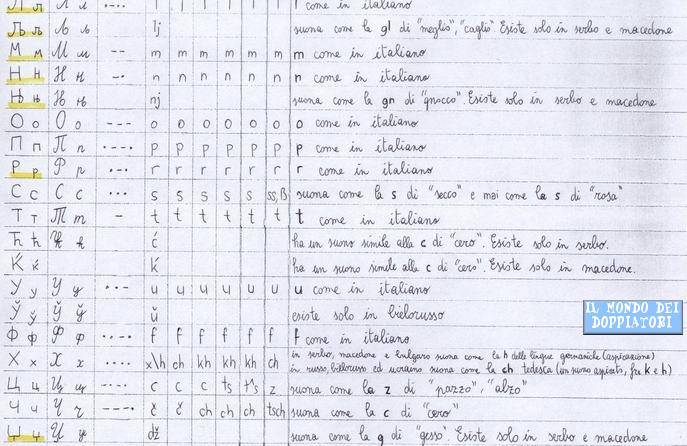 Л л Л л ·–·· l l l l l l l come in italiano
Љ љ Љ љ lj suona come la gl di "meglio", "caglio" Esiste solo in serbo e macedone
М м М м –– m m m m m m m come in italiano
Н н Н н –· n n n n n n n come in italiano
Њ њ Њ њ nj suona come la gn di "gnocco". Esiste solo in serbo e macedone
О о О о ––– o o o o o o o come in italiano
П п П п ·––· p p p p p p p come in italiano
Р р Р р ·–· r r r r r r r come in italiano
С с С с ··· s s s s s ss,ß suona come la s di "secco" e mai come la s di "rosa"
Т т Т т – t t t t t t t come in italiano
Ћ ћ Ћ ћ ć ha un suono simile alla c di "cero". Esiste solo in serbo.
Ḱ ḱ ḱ ha un suono simile alla c di "cero". Esiste solo in macedone.
У у У у ··– u u u u u u u come in italiano
Ў ў Ў ў ŭ esiste solo in bielorusso
Ф ф Ф ф ··–· f f f f f f f come in italiano
Х х Х х ···· x\h ch kh kh kh ch in serbo, macedone e bulgaro suona come la h delle lingue germaniche (aspirazione)
in russo, bielorusso ed ucraino suona come la ch tedesca (un suono aspirato, fra k e h)
Ц ц Ц ц –·–· c c c ts t^s z suona come la z di "pazzo", "alzo"
Ч ч Ч ч –––· č č ch ch ch tsch suona come la c di "cero"
Џ џ Џ џ dž suona come la g di "gesso". Esiste solo in serbo e macedone
IL MONDO DEI
DOPPIATORI